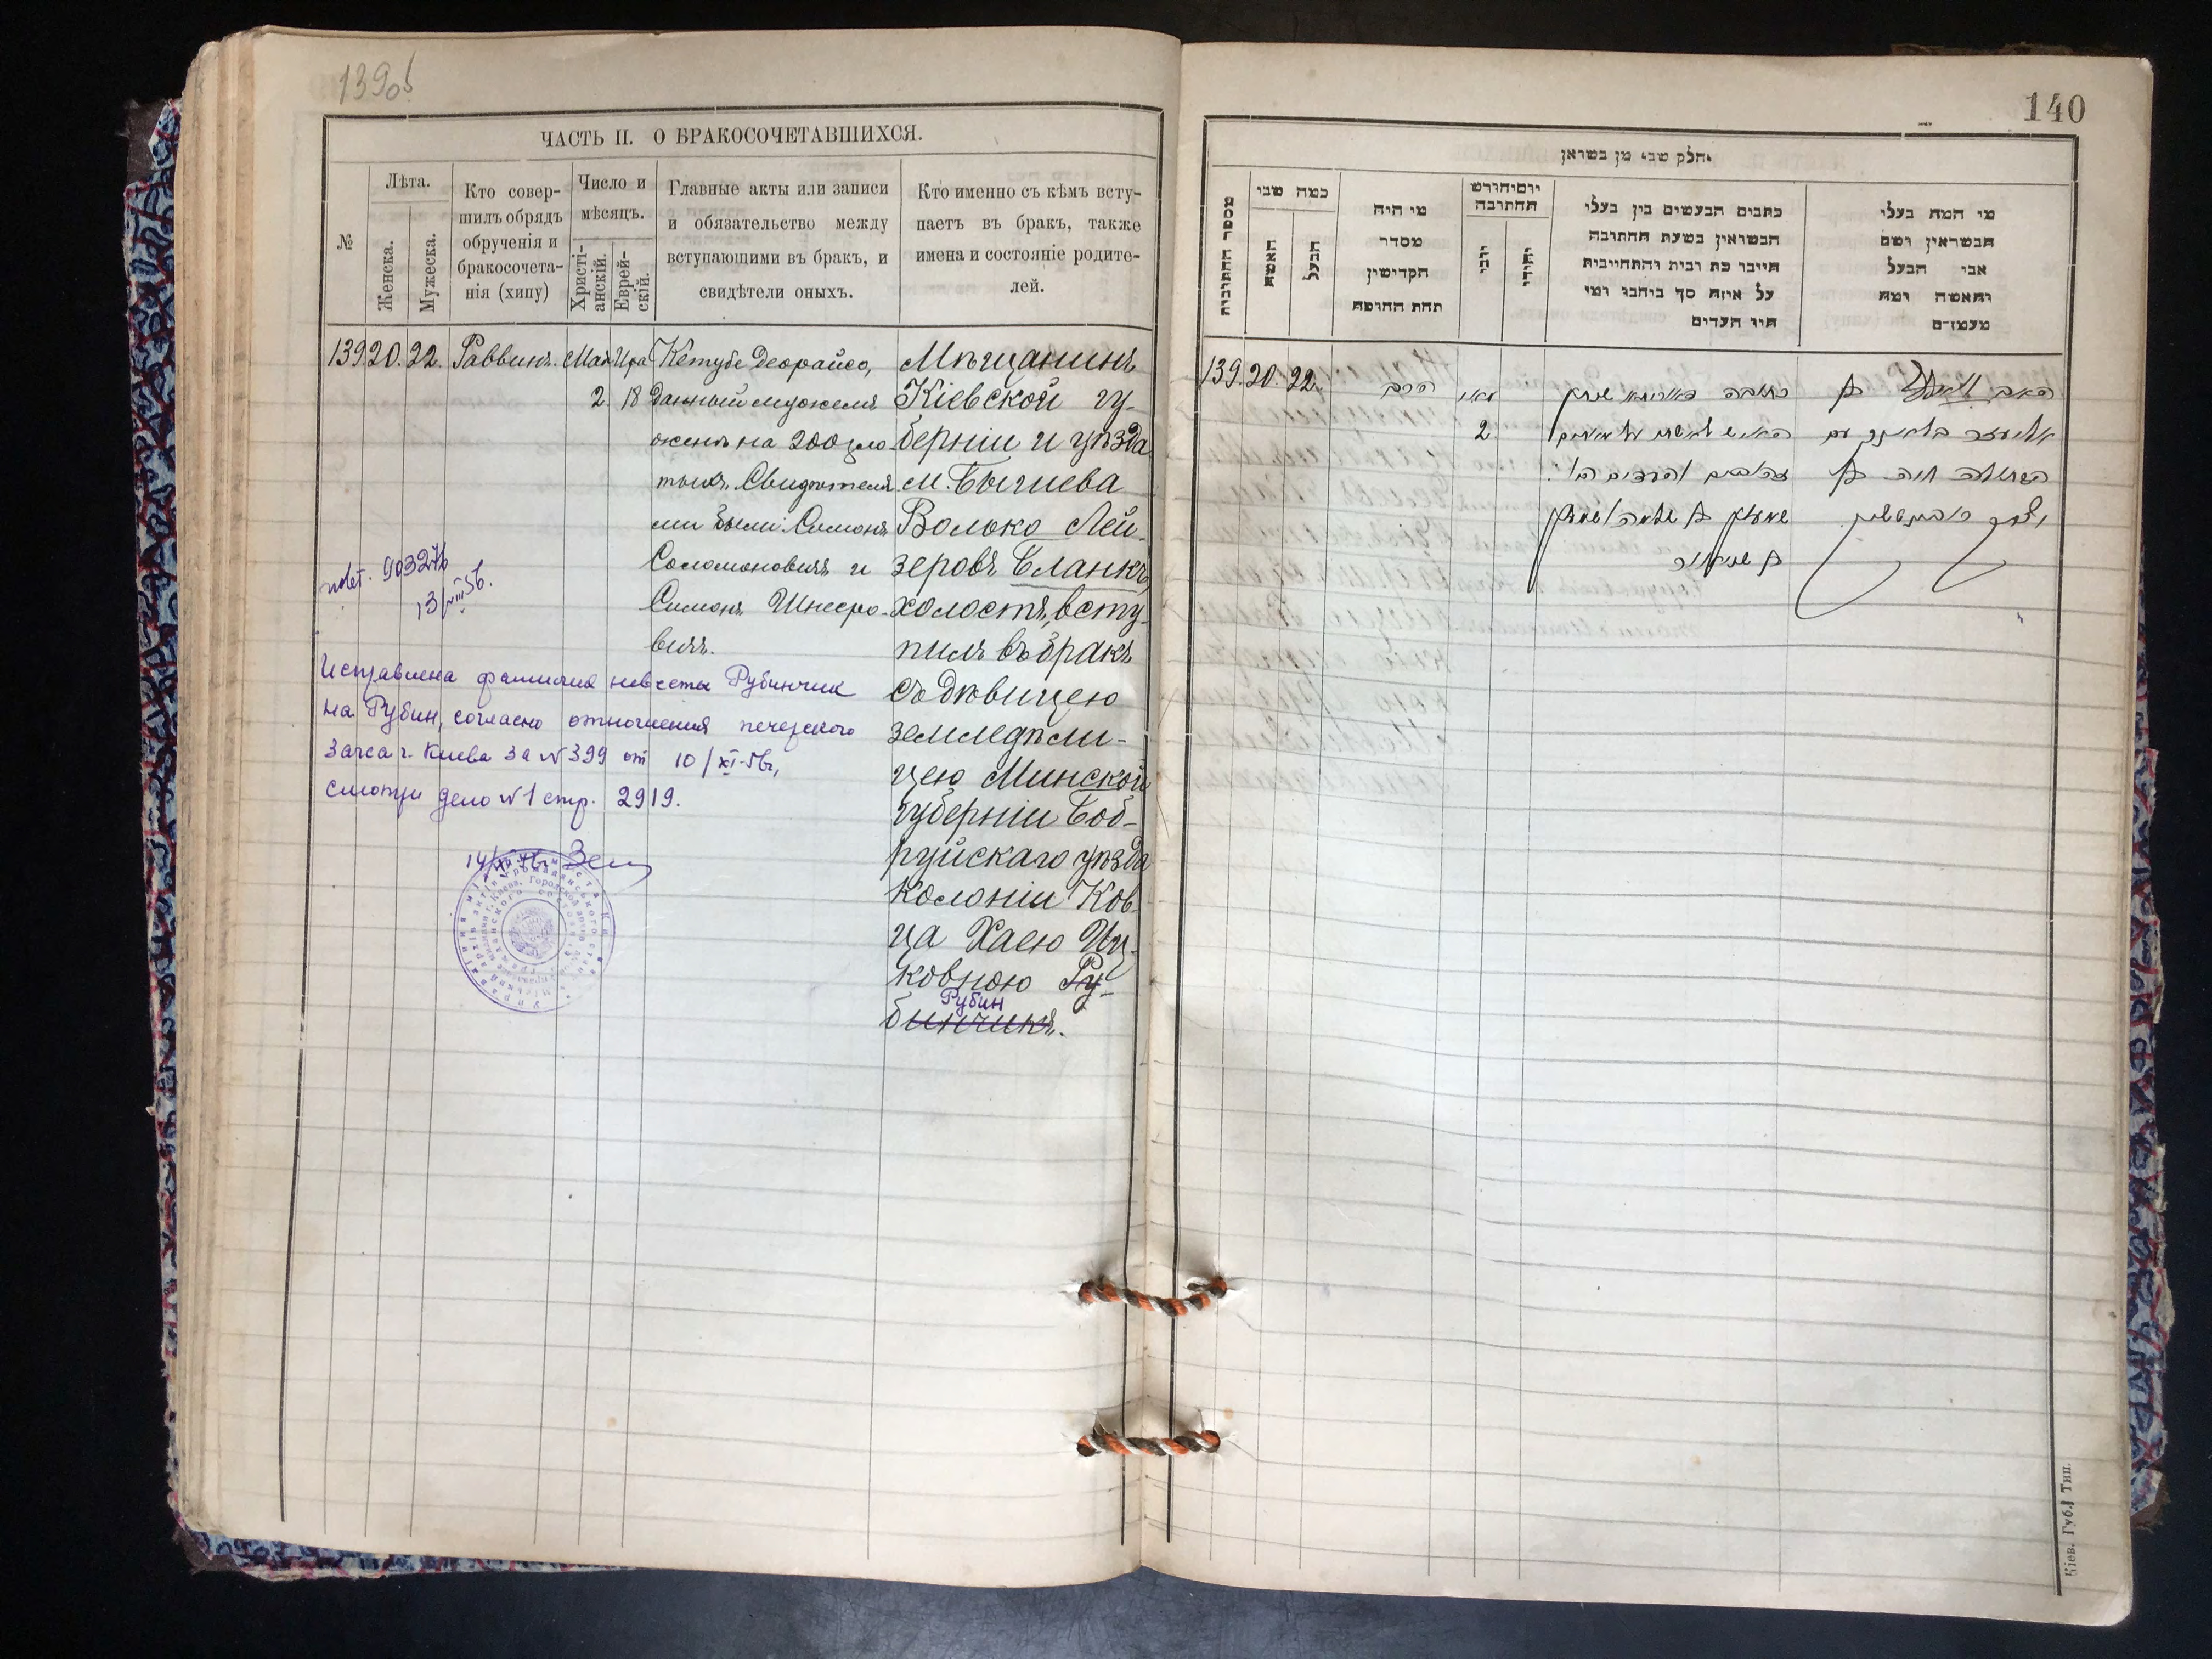 139об
ЧАСТЬ II. О БРАКОСОЧЕТАВШИХСЯ.
№
Лѣта.
Женска.
Мужеска.
Кто совер-
шилъ обрядъ
обрученія и
бракосочета-
нія (хипу)
Число и
мѣсяцъ.
Христі-
анскій.
Еврей-
скій.
Главные акты или записи
и обязательство между
вступающими въ бракъ, и
свидѣтели оныхъ.
Кто именно съ кѣмъ всту-
паетъ въ бракъ, также
имена и состояніе родите-
лей.
139 20. 22. Раввинъ. Мая Ира
2 18
Кетубе Деорайсо,
данный мужемъ
женѣ на 200 зло-
тыхъ. Свидѣтеля
ми были: Симонъ
Соломоновичъ и
Симонъ Шнееро-
вичъ.
Мѣщанинъ
Кіевской гу-
берніи и уѣзда
м. Бышева
Волько Лей-
зеровъ Бланкъ,
холостъ, всту-
пилъ въ бракъ
съ дѣвицею
земледѣли-
цею Минской
губерніи Боб-
руйскаго уѣзда
колоніи Ков-
ча Хаею Иц-
ковною Ру-
Рубин
бинчикъ.
903276
13/VIII 56.
Исправлена фамилия невесты Рубинчик
на Рубин, согласно отношения печерского
Загса г. Киева за № 399 от 10/XI-56г,
смотри дело № 1 стр. 2919.
140
חלק שני מן נשואין
מספר החתונות
כמה שני
האשה
הבעל
מי היה
מסדר
הקדישין
תחת החופה
יום וחודש
החתונה
יוני
יהודי
כתבים הנעשים בין בעלי
הנשואין בשעת החתונה
היינו כת ובית והתחייבות
על איזה סך ביחבו ומי
היו העדים
מי המה בעלי
הנשואין ושם
אבי הבעל
והאשה ומה
מעמדם
139. 20. 22.
הרב
מאי
2
כתובה דאורייתא
שמעון בן שלמה ושמעון
בן שניאור
אליעזר בלאנק עם
הבתולה חיה בת
Кіев. Губ. Тип.